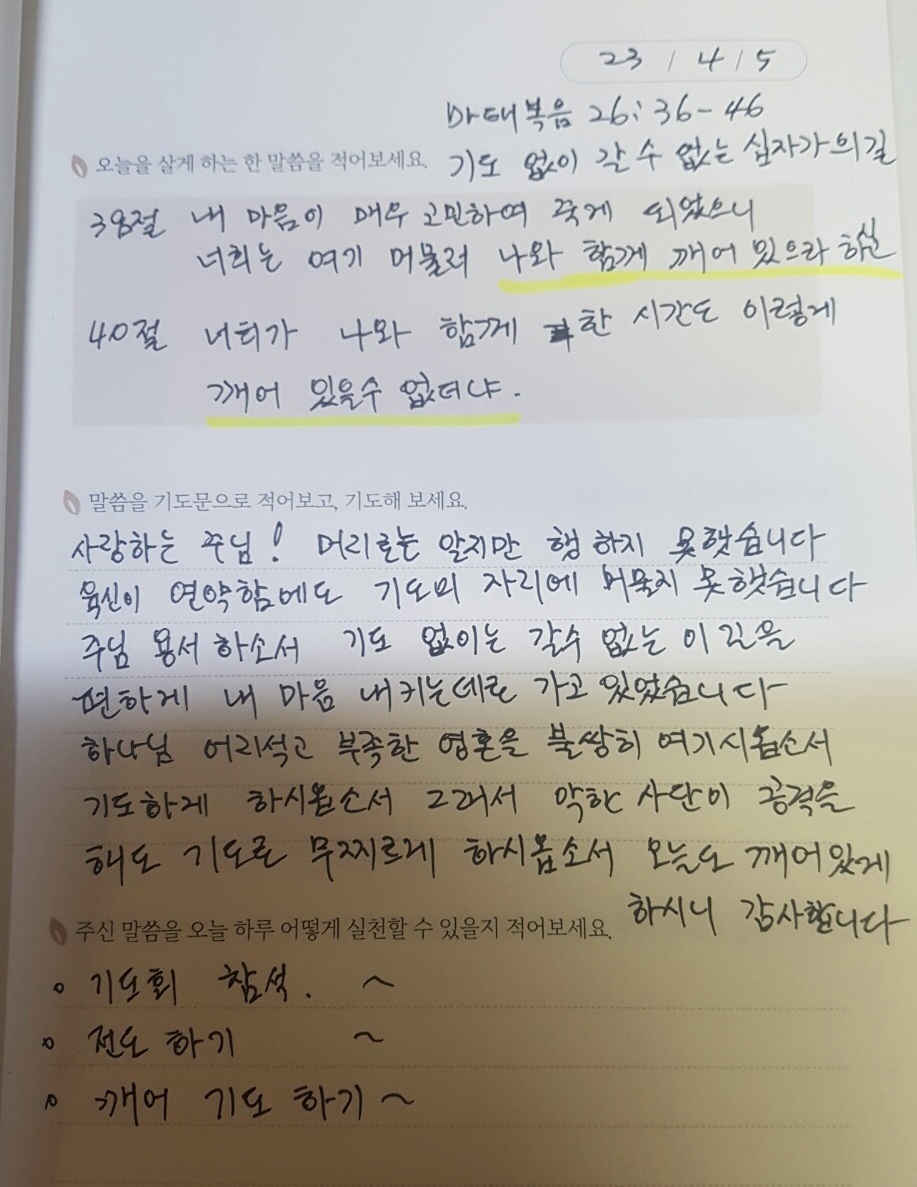 23 / 4 / 5
마태복음 26:36-46
기도 없이 갈 수 없는 십자가의 길
오늘을 살게 하는 한 말씀을 적어보세요.
38절 내 마음이 매우 고민하여 죽게 되었으니
너희는 여기 머물러 나와 함께 깨어 있으라 하신
40절 너희가 나와 함께 한 시간도 이렇게
깨어 있을수 없더냐.
말씀을 기도문으로 적어보고, 기도해 보세요.
사랑하는 주님! 머리로는 알지만 행하지 못했습니다
육신이 연약함에도 기도의 자리에 머물지 못했습니다
주님 용서 하소서 기도 없이는 갈수 없는 이 길을
편하게 내 마음 내키는데로 가고 있었습니다
하나님 어리석고 부족한 영혼을 불쌍히 여기시옵소서
기도하게 하시옵소서 그래서 악한 사단이 공격을
해도 기도로 무찌르게 하시옵소서 오늘도 깨어있게
하시니 감사합니다
주신 말씀을 오늘 하루 어떻게 실천할 수 있을지 적어보세요.
○ 기도회 참석. ~
○ 전도 하기 ~
○ 깨어 기도 하기 ~